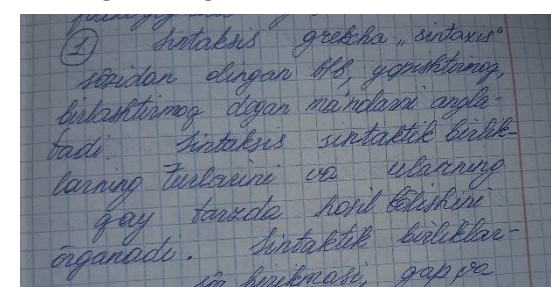 ① Sintaksis grekcha „sintaxis"
sözidan olingan bõb, yopishtirmoq,
birlashtirmoq degan ma'nolarni angla-
tadi. Sintaksis sintaktik birlik-
larning turlarini va ularning
qay tarzda hosil bõlishini
õrganadi. Sintaktik birliklar-
sõz birikmasi, gap va